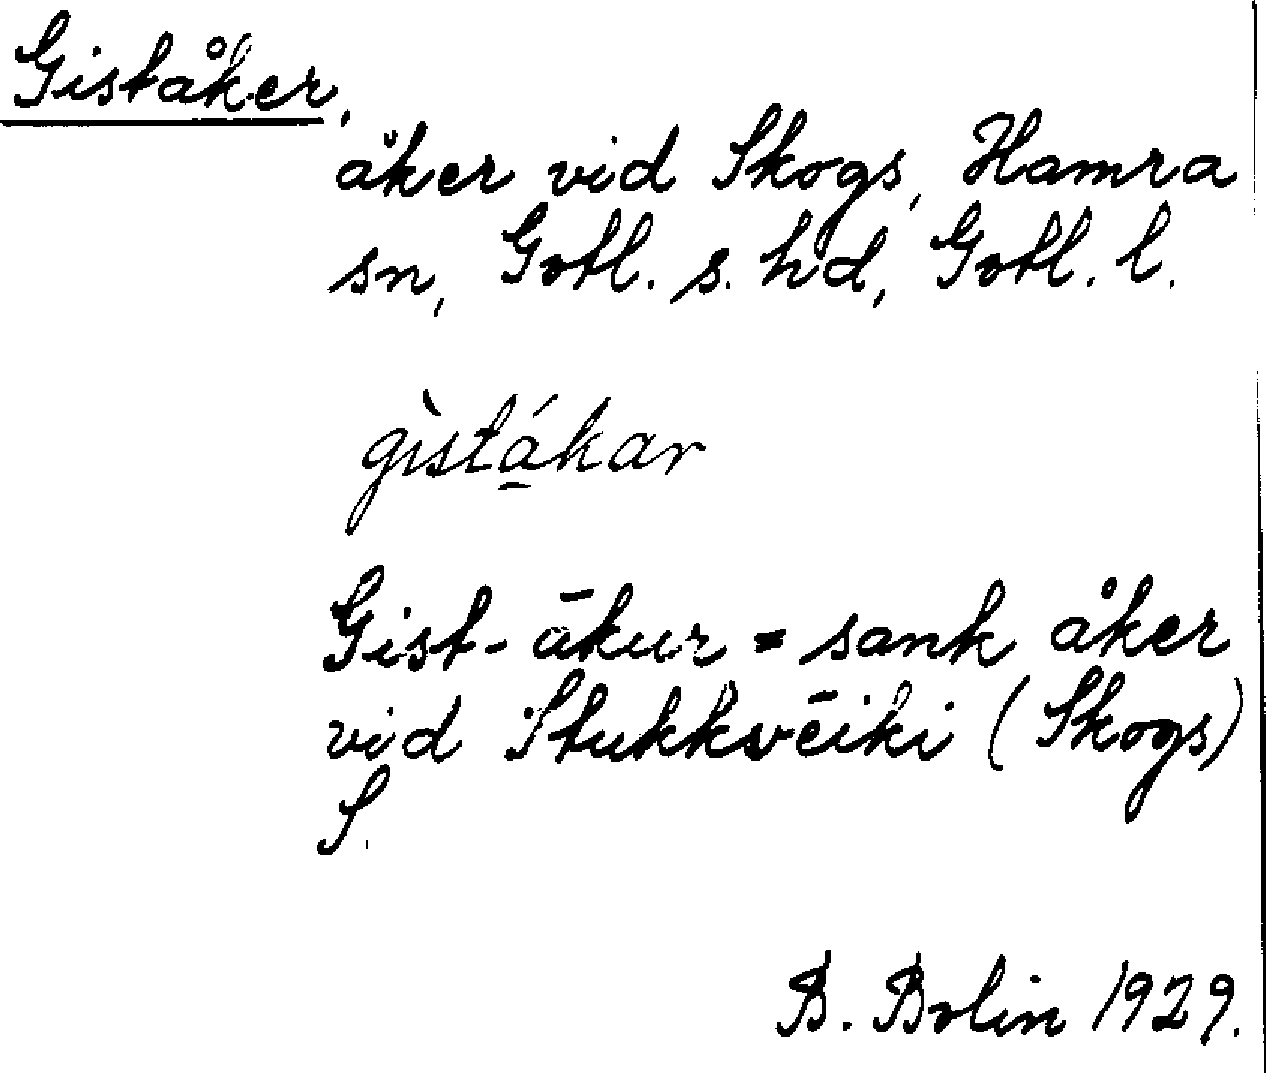 Giståker,
åker vid Skogs, Hamra
sn, Gotl. s. hd, Gotl. l.
gìstá̱kar
Gist-ākur = sank åker
vid Stukkvēiki (Skogs)
S.
B. Bolin 1929.